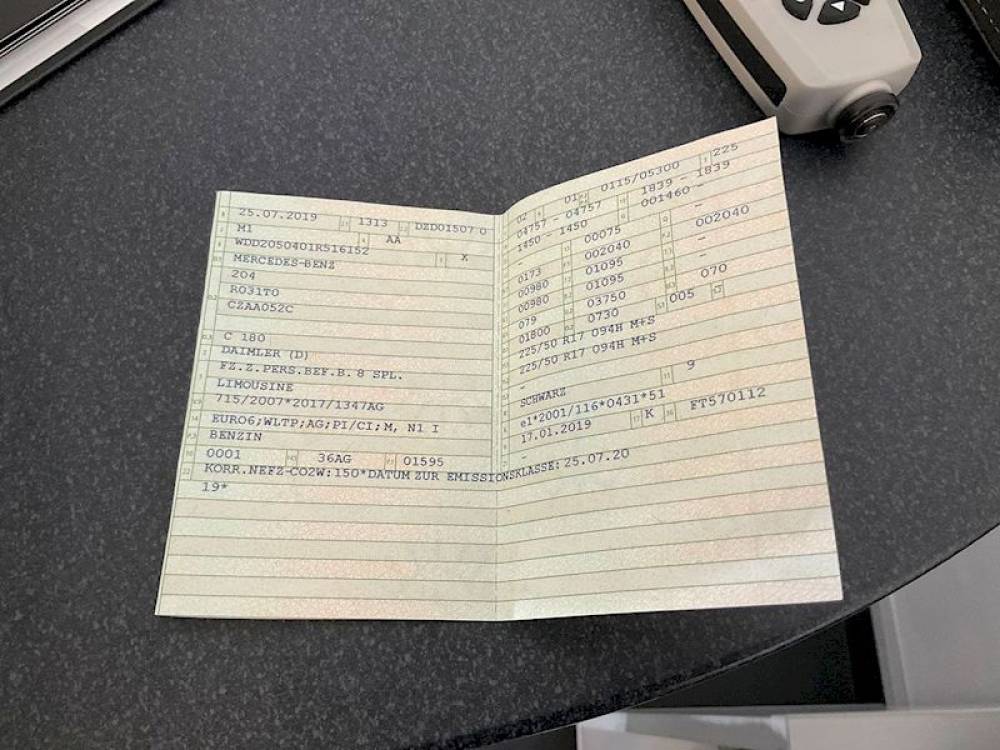 25.07.2019 1313 DZD01507 0
M1 AA
WDD2050401R516152 X
MERCEDES-BENZ
204
R031T0
CZAA052C
C 180
DAIMLER (D)
FZ.Z.PERS.BEF.B. 8 SPL.
LIMOUSINE
715/2007*2017/1347AG
EURO6;WLTP;AG;PI/CI;M, N1 I
BENZIN
0001 36AG 01595
KORR.NEFZ-CO2W:150*DATUM ZUR EMISSIONSKLASSE:25.07.20
19*
02 01 0115/05300 225
04757 - 04757 1839 - 1839
1450 - 1450 001460 -
- 00075 -
0173 002040 002040
00980 01095 -
00980 01095
079 03750 070
01800 0730 005
225/50 R17 094H M+S
225/50 R17 094H M+S
-
SCHWARZ 9
e1*2001/116*0431*51
17.01.2019 K FT570112
-